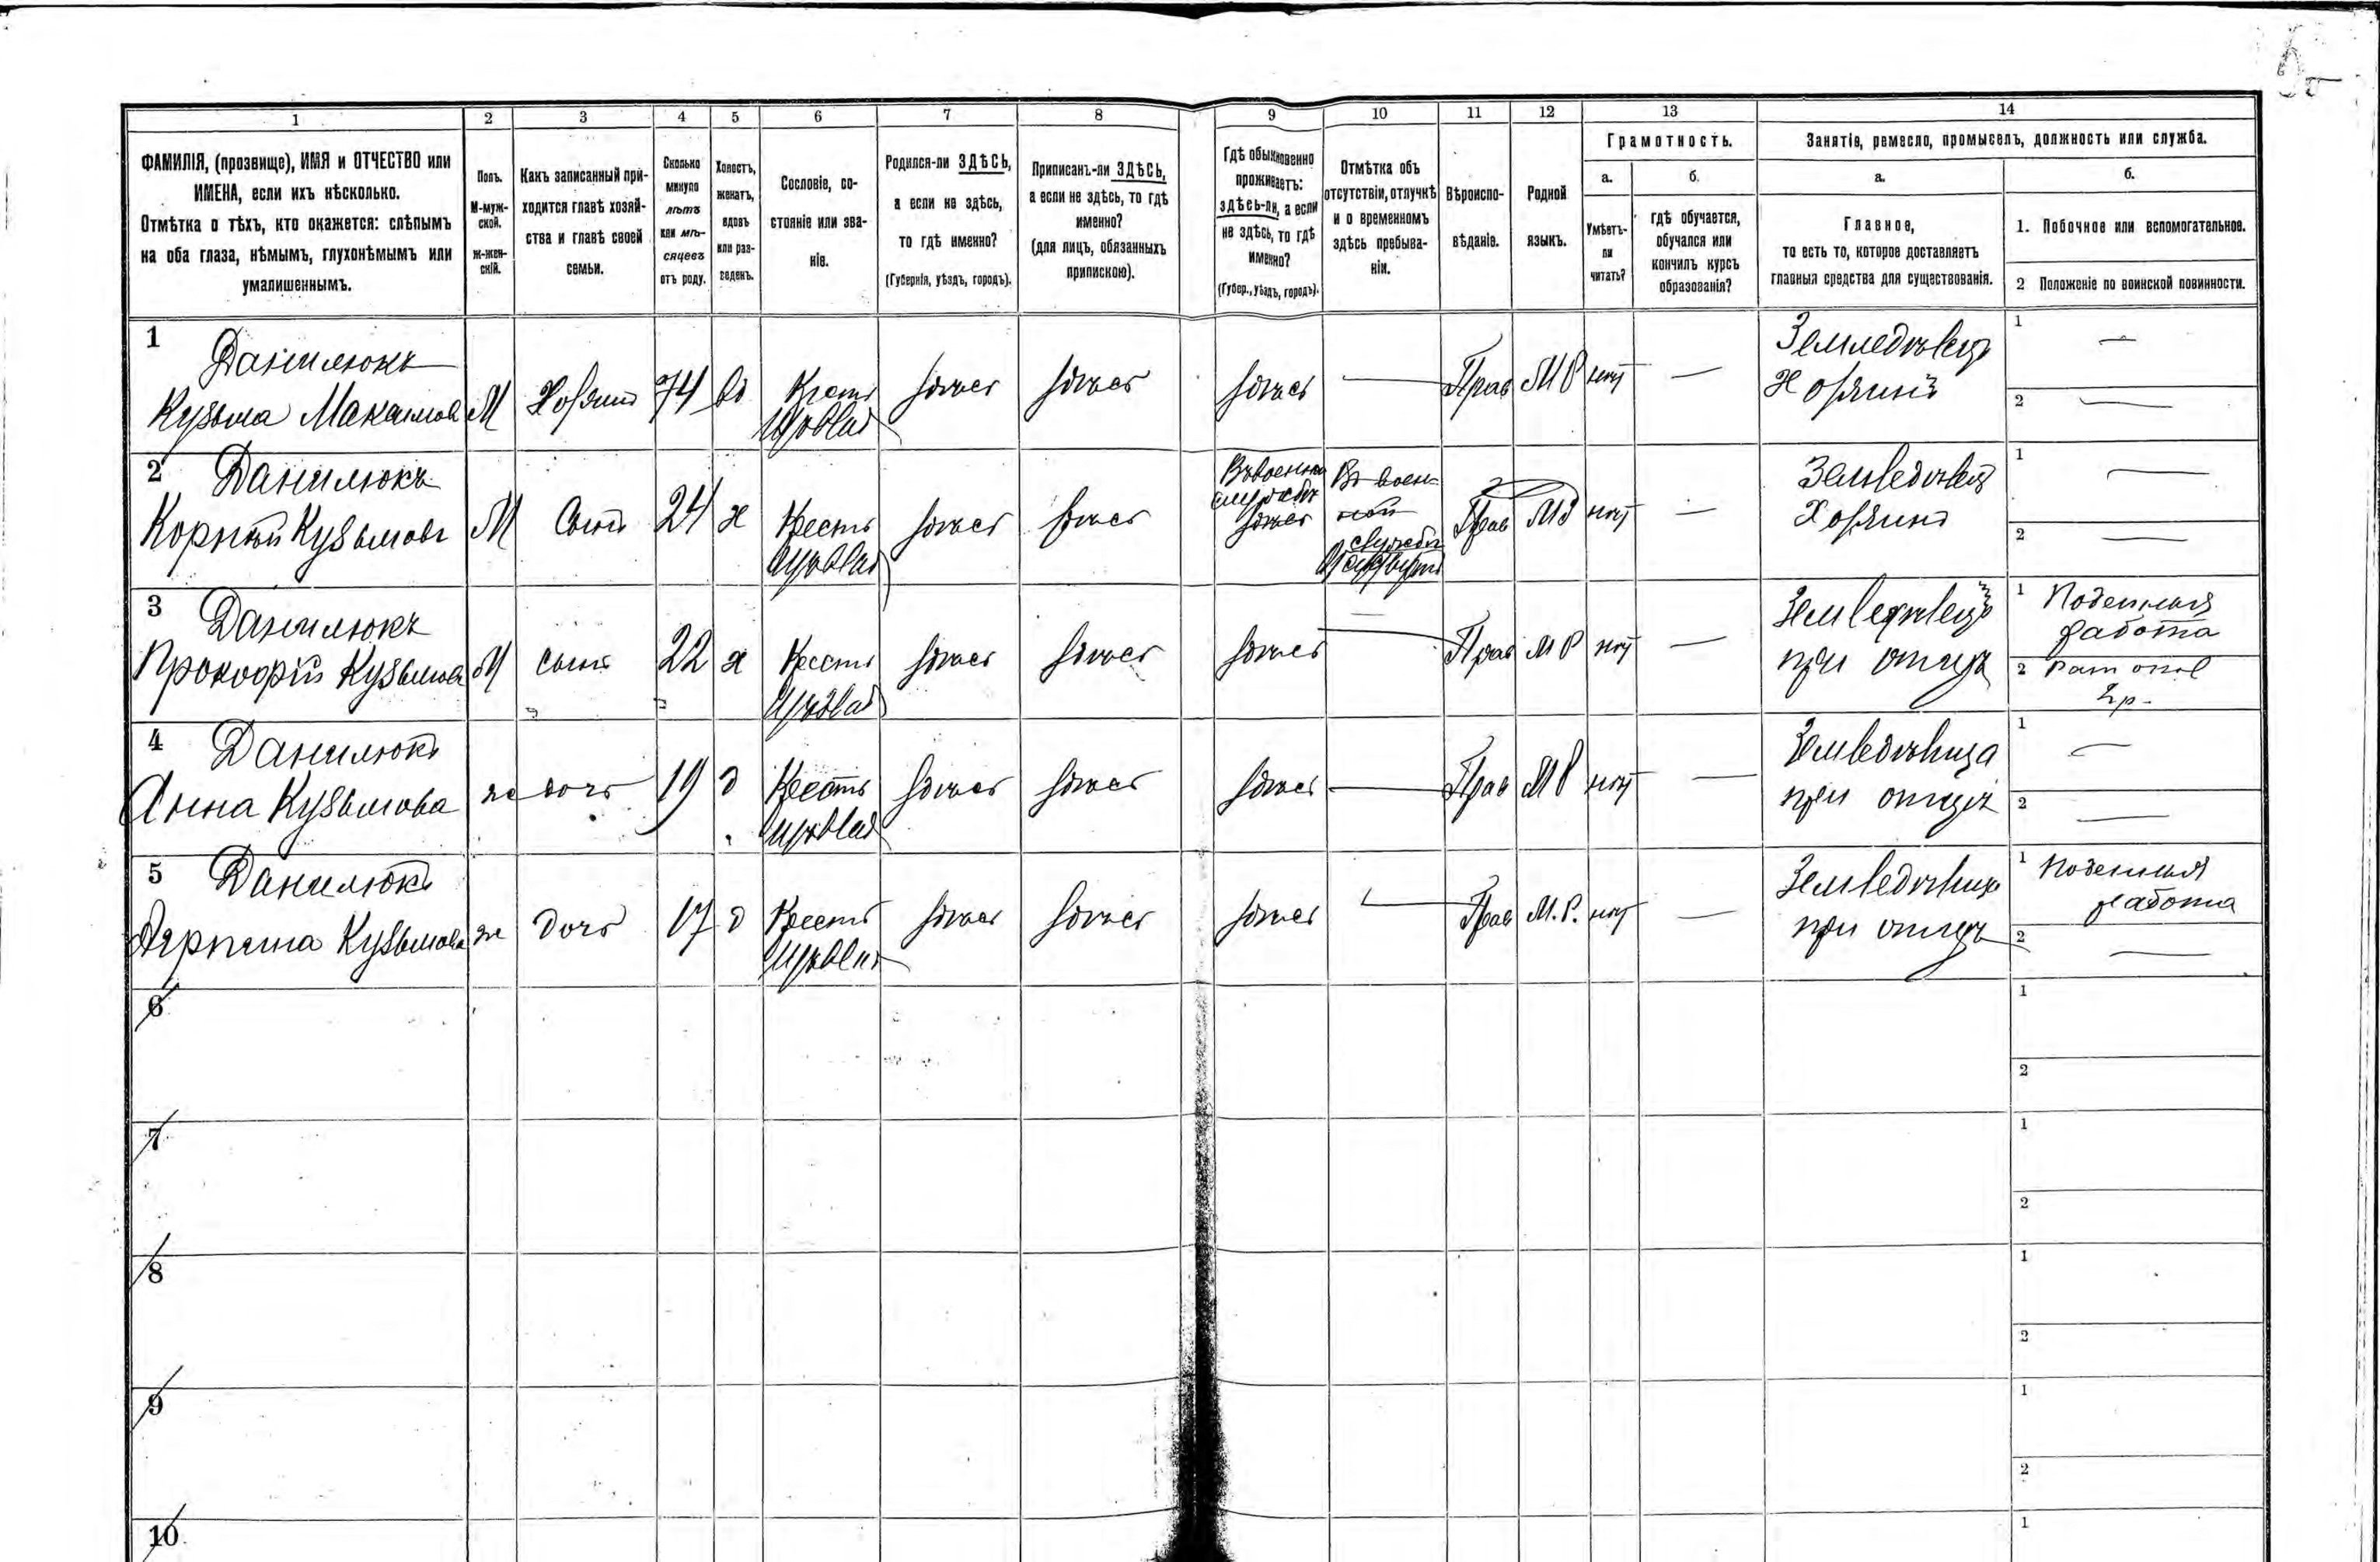 1 2 3 4 5 6 7 8 9 10 11 12 13 14
ФАМИЛІЯ, (прозвище), ИМЯ и ОТЧЕСТВО или
ИМЕНА, если ихъ нѣсколько.
Отмѣтка о тѣхъ, кто окажется: слѣпымъ
на оба глаза, нѣмымъ, глухонѣмымъ или
умалишеннымъ.
Полъ.
М-муж-
ской.
Ж-жен-
скій.
Какъ записанный при-
ходится главѣ хозяй-
ства и главѣ своей
семьи.
Сколько
минуло
лѣтъ
или мѣ-
сяцевъ
отъ роду.
Холостъ,
женатъ,
вдовъ
или раз-
веденъ.
Сословіе, со-
стояніе или зва-
ніе.
Родился-ли ЗДѢСЬ,
а если не здѣсь,
то гдѣ именно?
(Губернія, уѣздъ, городъ).
Приписанъ-ли ЗДѢСЬ,
а если не здѣсь, то гдѣ
именно?
(для лицъ, обязанныхъ
припискою).
Гдѣ обыкновенно
проживаетъ:
здѣсь-ли, а если
не здѣсь, то гдѣ
именно?
(Губер., уѣздъ, городъ).
Отмѣтка объ
отсутствіи, отлучкѣ
и о временномъ
здѣсь пребыва-
ніи.
Вѣроиспо-
вѣданіе.
Родной
языкъ.
Грамотность.
а.
Умѣетъ-
ли
читать?
б.
гдѣ обучается,
обучался или
кончилъ курсъ
образованія?
Занятіе, ремесло, промыселъ, должность или служба.
а.
Главное,
то есть то, которое доставляетъ
главныя средства для существованія.
б.
1. Побочное или вспомогательное.
2 Положеніе по воинской повинности.
1 Данилюкъ
Кузьма Максимов М Хозяинъ 74 вд Крестъ здѣсь здѣсь здѣсь — Прав МР нѣт —
Земледѣлецъ
Хозяинъ
1 —
2 —
2 Данилюкъ
Корній Кузьмовъ М Сынъ 24 х Крестъ здѣсь здѣсь
службѣ
здѣсь
Въ воен-
ной
службѣ
Прав нѣт —
Хозяинъ
1 —
2 —
3 Данилюкъ
Прокофій Кузьмовъ М сынъ 22 х Крестъ здѣсь здѣсь здѣсь — Прав МР нѣт —
при отцѣ
1 Поденная
работа
2 Рат опол
2 р.
4 Данилюкъ
Анна Кузьмова ж дочь 19 д Крестъ здѣсь здѣсь здѣсь — Прав МР нѣт —
при отцѣ
1 —
2 —
5 Данилюкъ
Кузьмова ж дочь 17 д Крестъ здѣсь здѣсь здѣсь — Прав М.Р. нѣт —
при отцѣ
1 Поденная
работа
2 —
6
1
2
7
1
2
8
1
2
9
1
2
10.
1